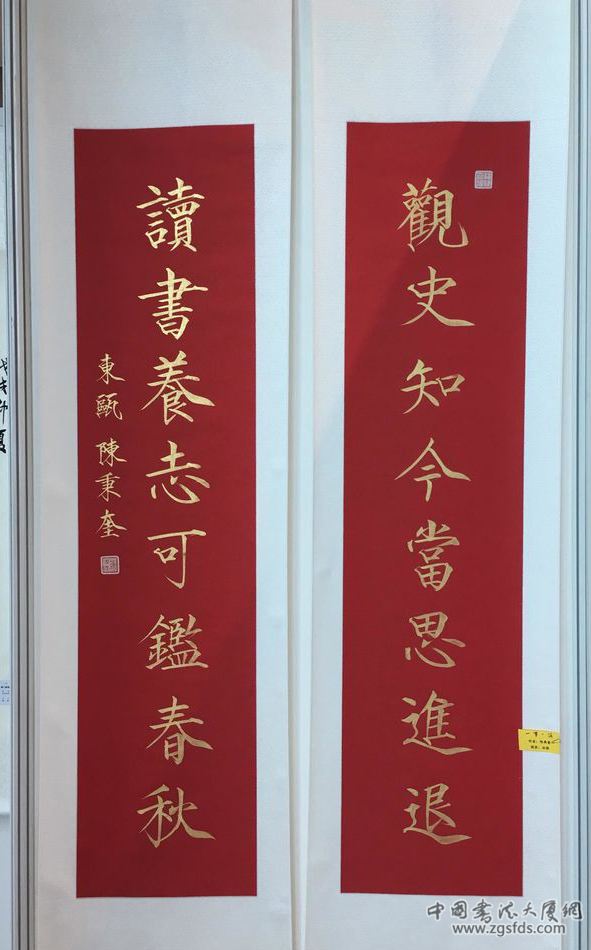 觀史知今當思進退
讀書養志可鑑春秋
東甌 陳秉奎
中國書法大厦網
www.zgsfds.com